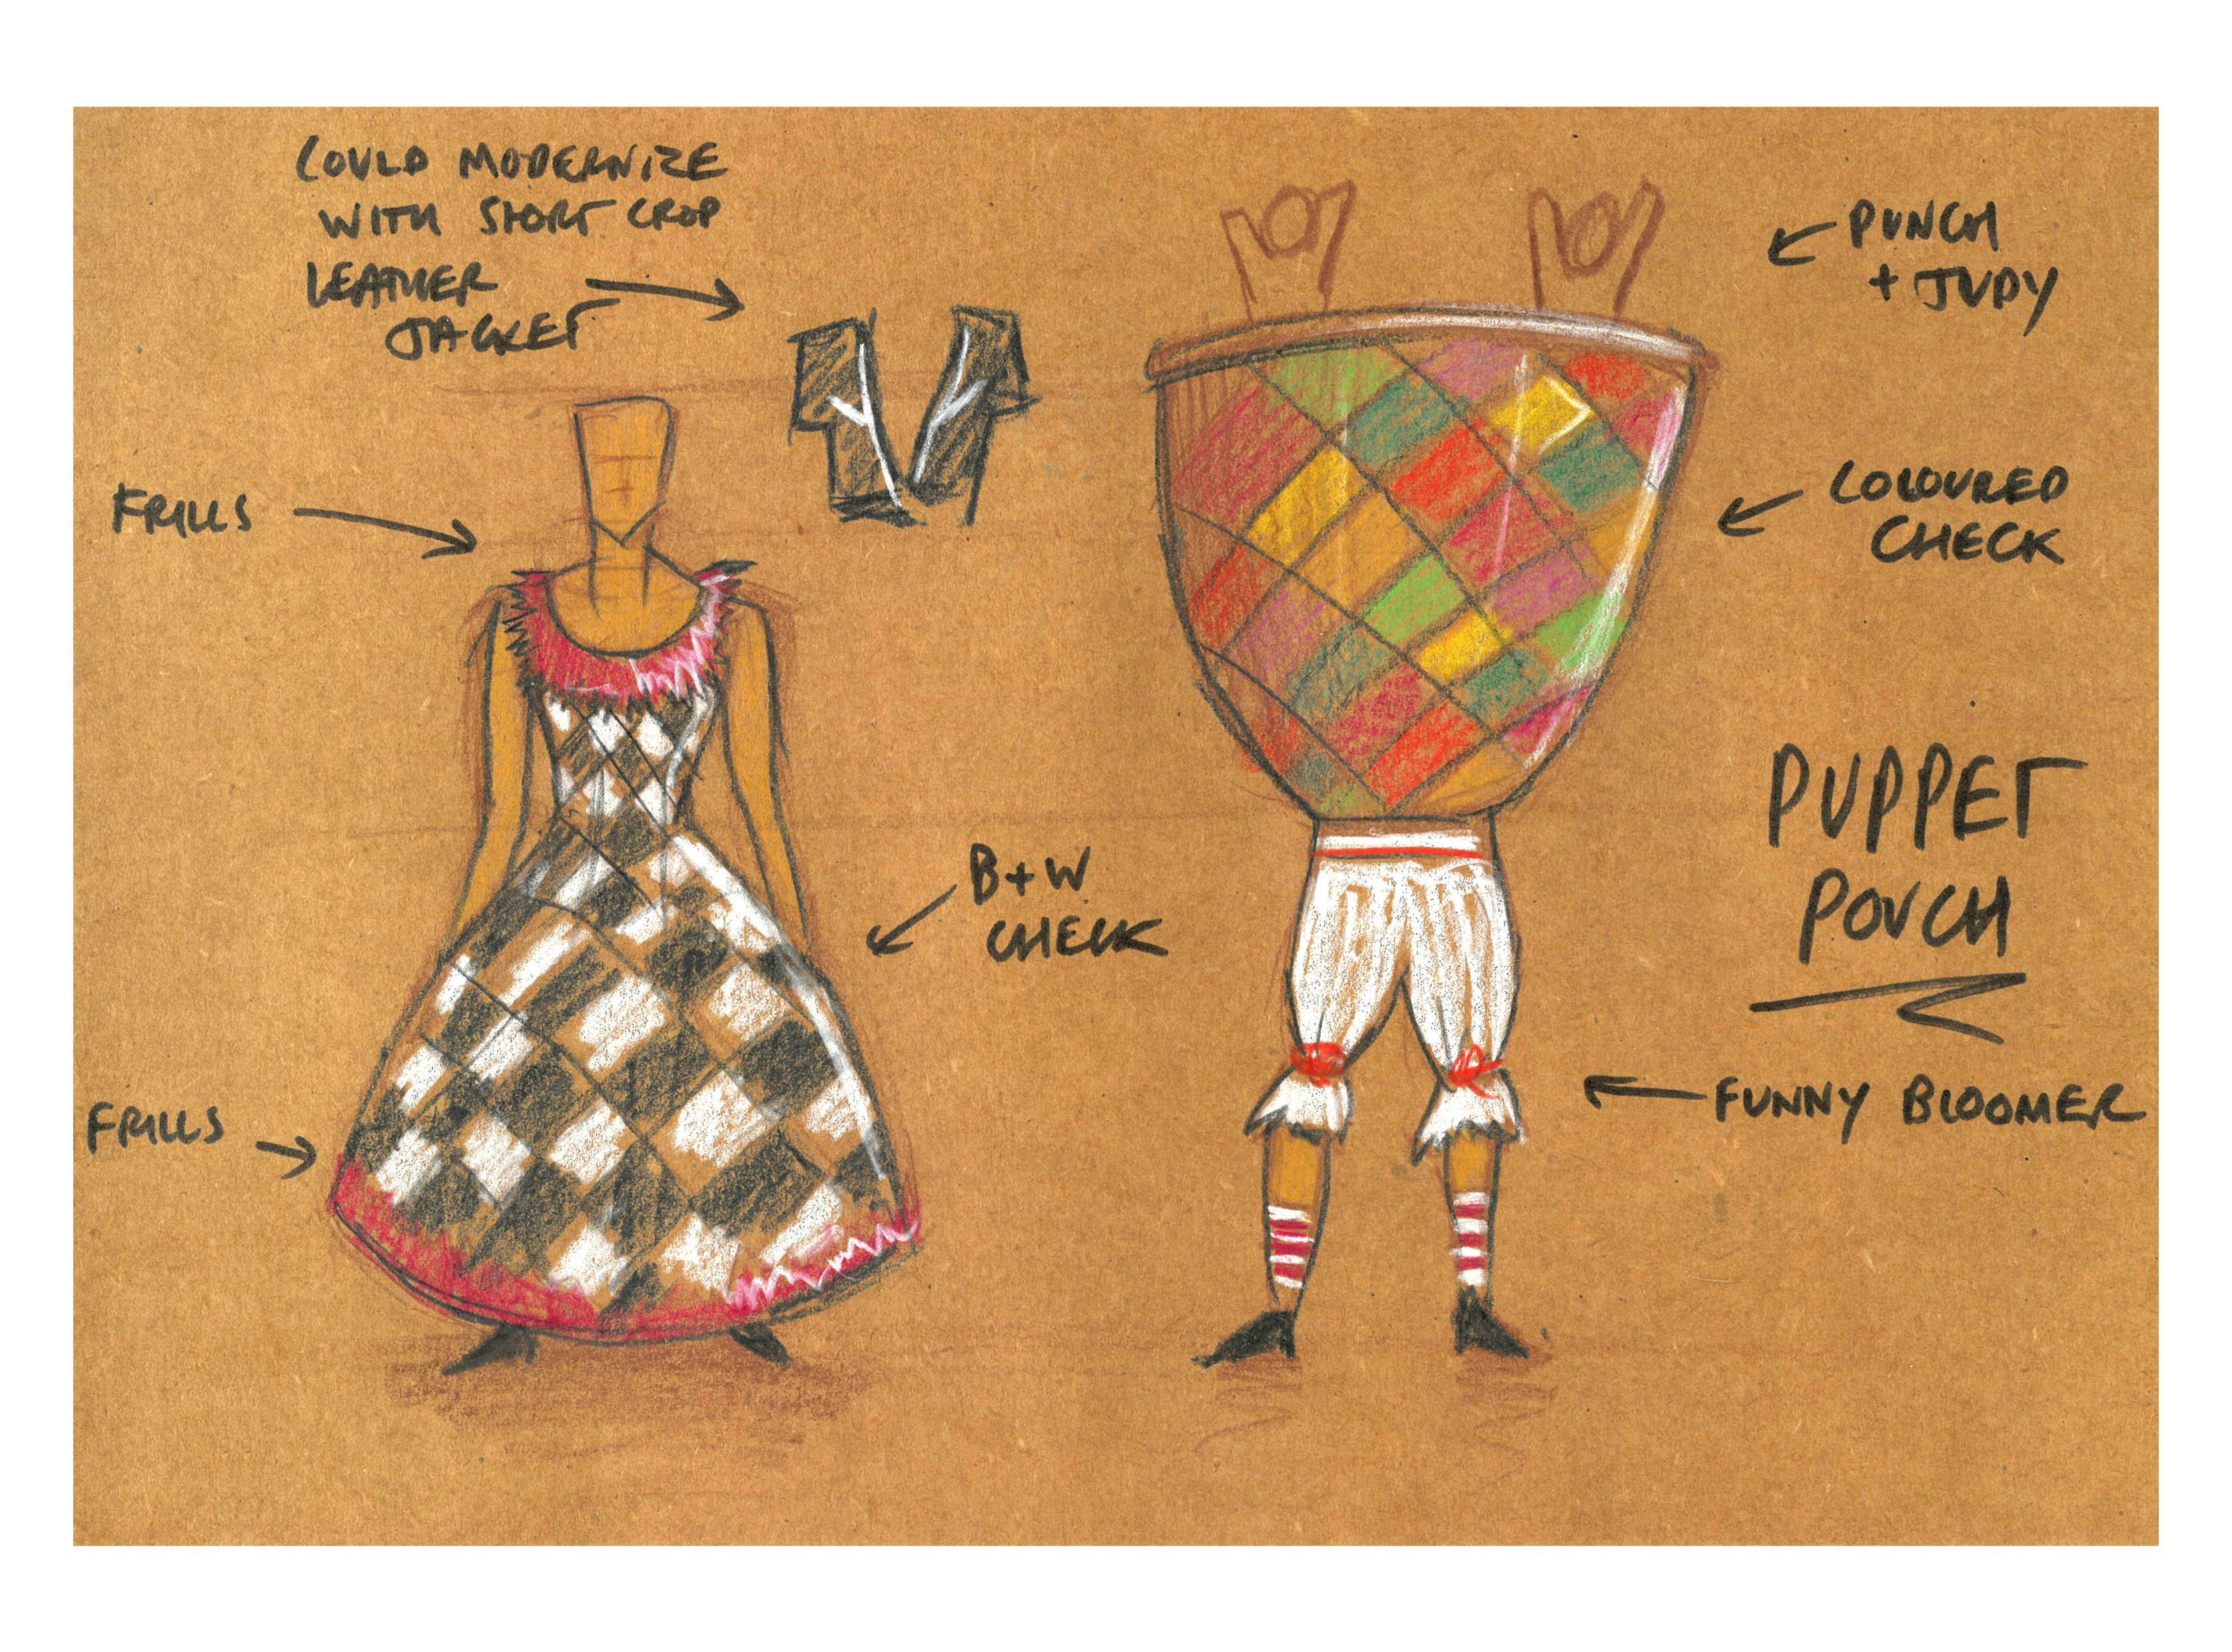 COULD MODERNIZE
WITH SHORT CROP
LEATHER
JACKET
FRILLS
FRILLS
B+W
CHECK
PUNCH
+ JUDY
COLOURED
CHECK
PUPPET
POUCH
FUNNY BLOOMER